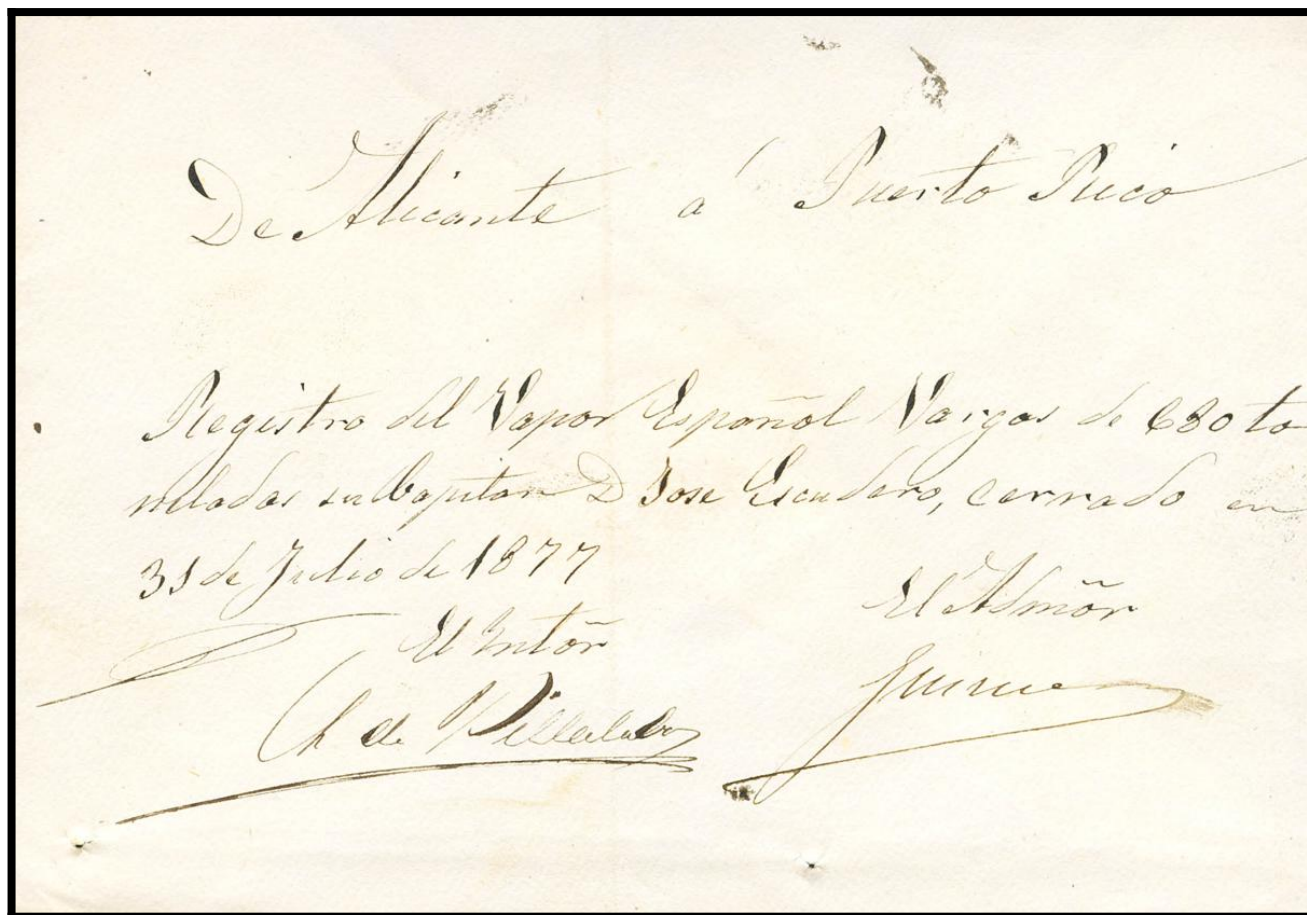 De Alicante á Puerto Rico
Registro del Vapor Español Vargas de 680 to
neladas su Capitan D Jose Escudero, cerrado en
31 de Julio de 1877
El Intõr El Admõr
de